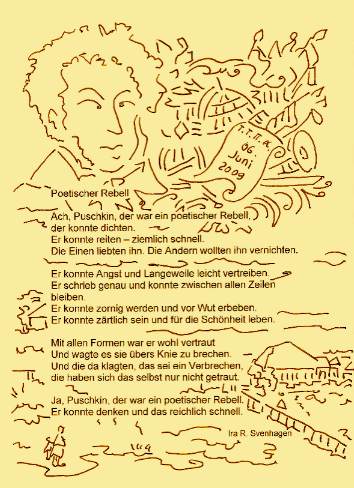 T.T.П.К.
06.
Juni
2009
Poetischer Rebell
Ach, Puschkin, der war ein poetischer Rebell,
der konnte dichten.
Er konnte reiten – ziemlich schnell.
Die Einen liebten ihn. Die Andern wollten ihn vernichten.
Er konnte Angst und Langeweile leicht vertreiben.
Er schrieb genau und konnte zwischen allen Zeilen
bleiben.
Er konnte zornig werden und vor Wut erbeben.
Er konnte zärtlich sein und für die Schönheit leben.
Mit allen Formen war er wohl vertraut
Und wagte es sie übers Knie zu brechen.
Und die da klagten, das sei ein Verbrechen,
die haben sich das selbst nur nicht getraut.
Ja, Puschkin, der war ein poetischer Rebell.
Er konnte denken und das reichlich schnell.
Ira R. Svenhagen